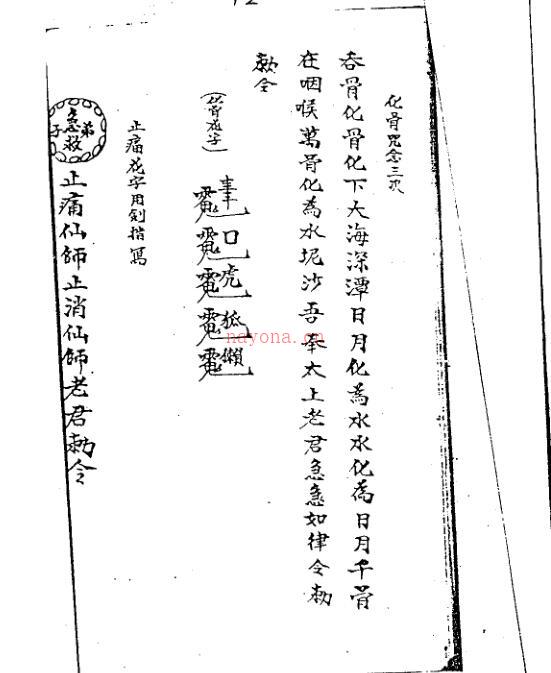 12
化骨咒念三次
吞骨化骨化下大海深潭日月化為水水化為日月千骨
在咽喉萬骨化為水坭沙吾奉太上老君急急如律令勅
勅令
(化骨花字)
口虎狐獺
止痛花字用劍指寫
弟子急救
止痛仙師止消仙師老君勅令
nayona.cn